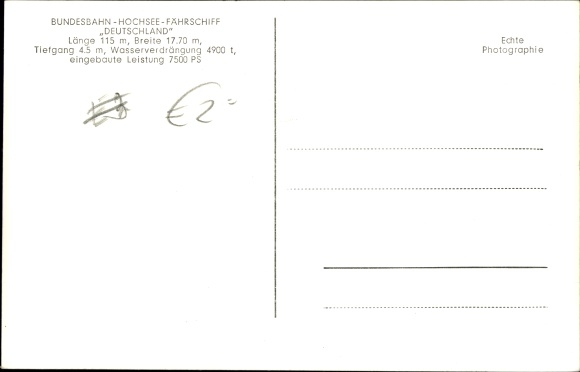 BUNDESBAHN-HOCHSEE-FÄHRSCHIFF
„DEUTSCHLAND"
Länge 115 m, Breite 17.70 m,
Tiefgang 4.5 m, Wasserverdrängung 4900 t,
eingebaute Leistung 7500 PS
Echte
Photographie
€2=